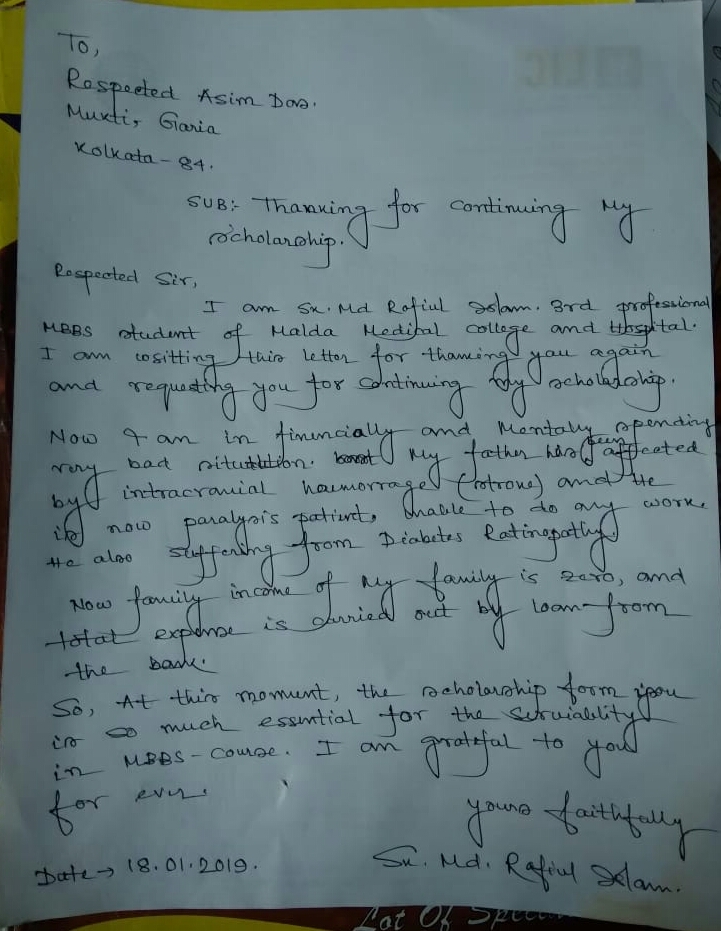 To,
Respected Asim Das.
Mukti, Garia
Kolkata - 84.
SUB:- Thanking for continuing My
Scholarship.
Respected Sir,
I am Sk. Md Rafiul Islam. 3rd professional
MBBS student of Malda Medical college and Hospital.
I am writting this letter for thanking you again
and requesting you for continuing my scholarship.
Now I am in finincially and Mentaly spending
very bad situtation. My father has been affected
by intracranial haemorrage (strone) and He
is now paralysis patiunt, unable to do any work.
He also stuffering from Diabetes Ratinopathy.
Now family income of my family is zero, and
total expense is carried out by loan from
the bank.
So, At this moment, the scholarship form you
is so much essential for the
in MBBS - Course. I am grateful to you
for ever.
yours faithfully
Date → 18.01.2019.
Sk. Md. Rafiul Islam.
Lot Of